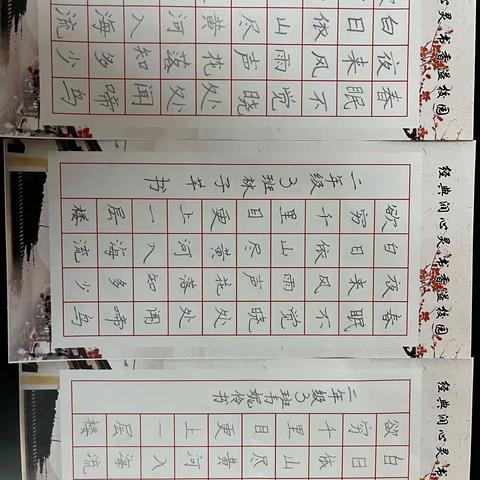 润心灵 书香溢校园
春眠不觉晓处处闻啼鸟
夜来风雨声花落知多少
白日依山尽黄河入海流
经典润心灵 书香溢校园
春眠不觉晓处处闻啼鸟
夜来风雨声花落知多少
白日依山尽黄河入海流
欲穷千里目更上一层楼
二年级3班林子芊书
经典润心灵 书
白日依山尽黄河入海流
欲穷千里目更上一层楼
二年级3班